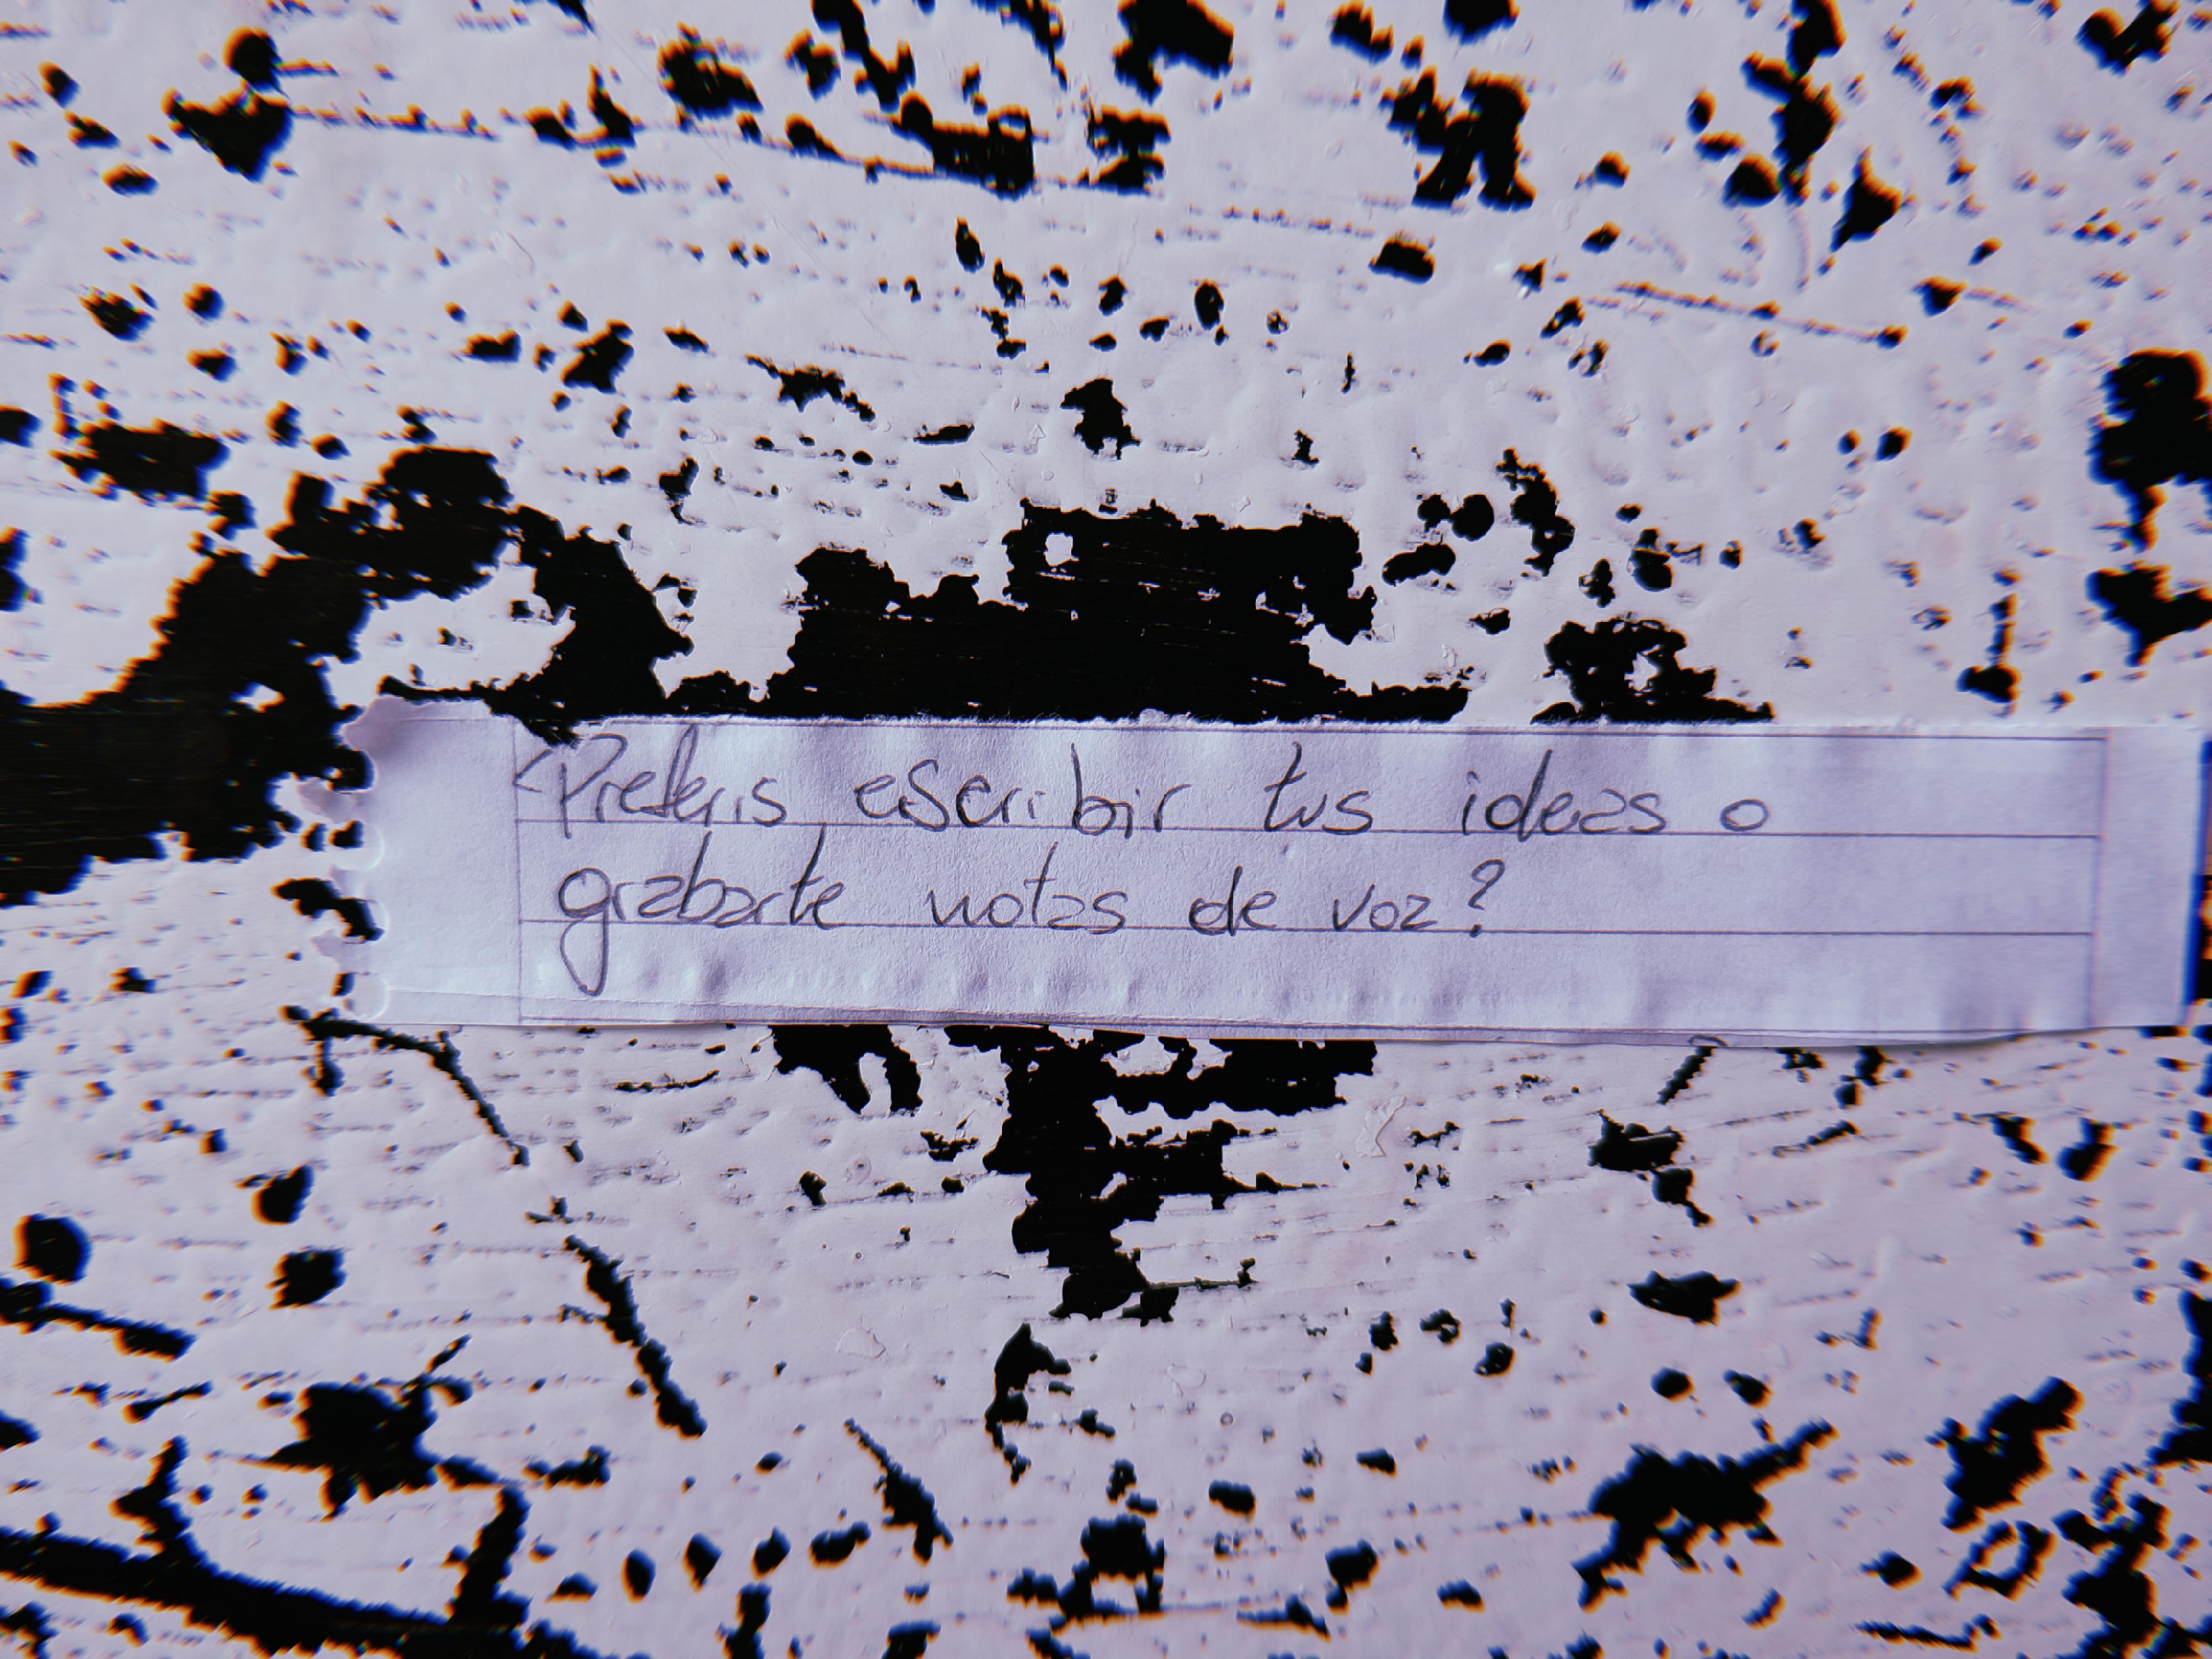 ¿Preferís escribir tus ideas o
grabarte notas de voz?